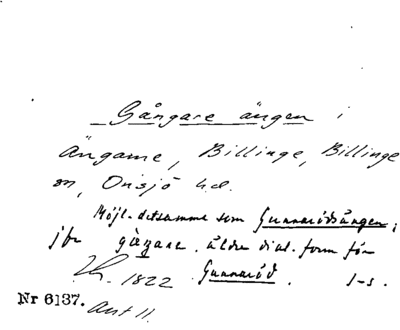 Gångare ängen i
Ängarne, Billinge, Billinge
sn, Onsjö hd.
Möjl. detsamma som Gunnarödsängen;
jfr gæzare. äldre dial. form för
Lk. 1822 Gunnaröd. I-s.
Nr 6137. Ant 11.